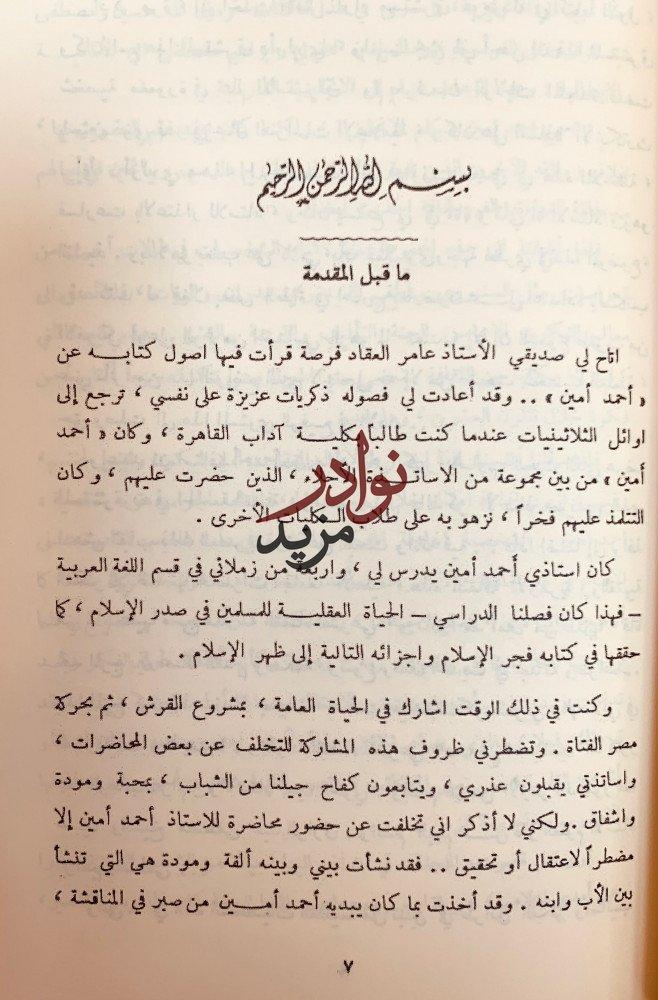 بسم الله الرحمن الرحيم
ما قبل المقدمة
اتاح لي صديقي الأستاذ عامر العقاد فرصة قرأت فيها اصول كتابه عن
« أحمد أمين » .. وقد أعادت لي فصوله ذكريات عزيزة على نفسي ، ترجع إلى
اوائل الثلاثينيات عندما كنت طالباً بكلية آداب القاهرة ، وكان « أحمد
أمين » من بين مجموعة من الاساتذة الأجلاء ، الذين حضرت عليهم ، وكان
التتلمذ عليهم فخراً ، نزهو به على طلاب الكليات الأخرى .
كان استاذي أحمد أمين يدرس لي ، واربعة من زملائي في قسم اللغة العربية
– فهذا كان فصلنا الدراسي – الحياة العقلية للمسلمين في صدر الإسلام ، كما
حققها في كتابه فجر الإسلام واجزائه التالية إلى ظهر الإسلام .
وكنت في ذلك الوقت اشارك في الحياة العامة ، بمشروع القرش ، ثم بحركة
مصر الفتاة . وتضطرني ظروف هذه المشاركة للتخلف عن بعض المحاضرات ،
واساتذتي يقبلون عذري ، ويتابعون كفاح جيلنا من الشباب ، بمحبة ومودة
واشفاق . ولكني لا أذكر اني تخلفت عن حضور محاضرة للاستاذ أحمد أمين إلا
مضطراً لاعتقال أو تحقيق .. فقد نشأت بيني وبينه ألفة ومودة هي التي تنشأ
بين الأب وابنه . وقد أخذت بما كان يبديه أحمد أمين من صبر في المناقشة ،
٧
نوادر
مزيد